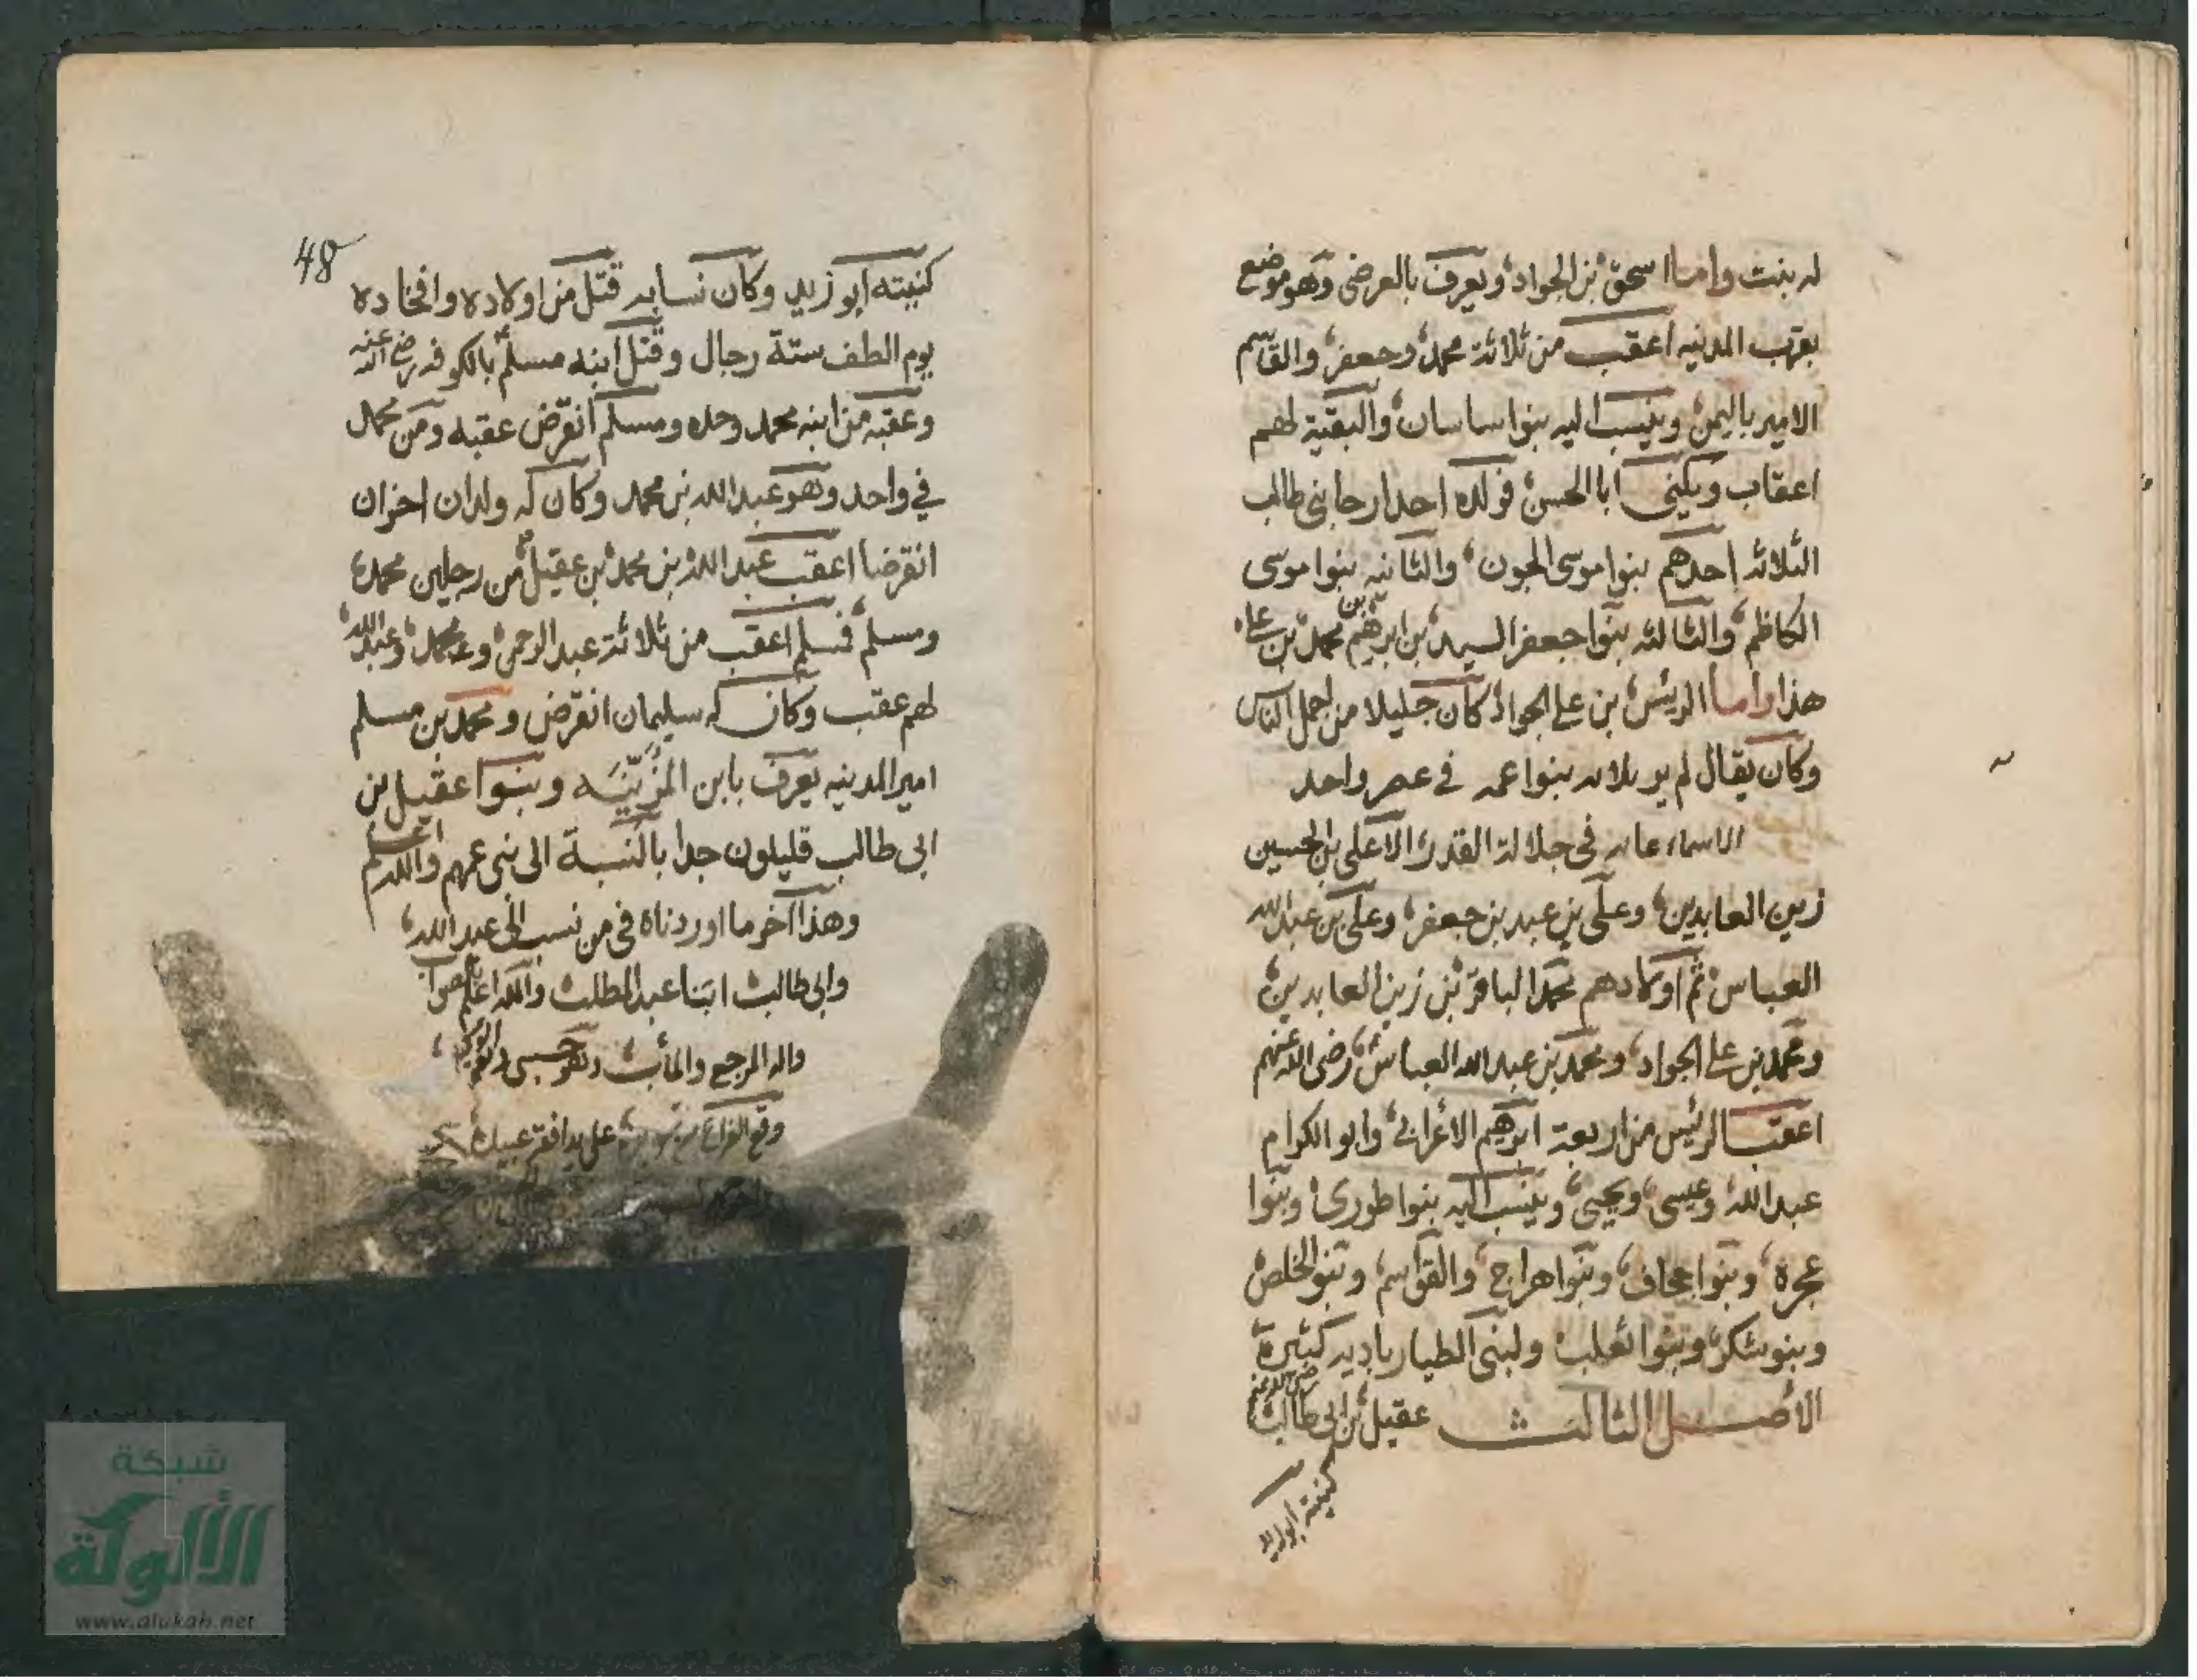 له بنت واما اسحق بن الجواد ويعرف بالعرضى وهو موضع
بقرب المدينه اعقب من ثلاثة محمد وجعفر والقاسم
الامير باليمن وينسب اليه بنوا ساسان والبقية لهم
اعقاب ويكنى ابا الحسن فولده احد ارحا بنى طالب
الثلاثه احدهم بنوا موسى الجون والثانيه بنوا موسى
الكاظم والثالثه بنوا جعفر السيد بن ابرهيم بن محمد بن على
هذا واما الريئس بن على الجواد كان جليلا من اجمل الناس
وكان يقال لم ير بنوا عمه فى عصر واحد
الاسماء فى جلالة القدر الا على بن الحسين
زين العابدين وعلى بن عبد بن جعفر وعلى بن عبد الله
العباس ثم اولادهم محمد الباقر بن زين العابدين
ومحمد بن على الجواد ومحمد بن عبد الله العباس رضى الله عنهم
اعقب الرئيس من اربعة ابرهيم الاعرابى وابو الكرام
عبد الله وعيسى ويحيى وينسب اليه بنوا طورى وبنوا
عجرة وبنوا جحاف وبنوا هراج والقواسم وبنو الخلص
وبنو شكر وبنوا ثعلب ولبنى الطيار باديه كثيرة
الاصل الثالث عقيل بن ابى طالب رضى الله عنه
كنيته ابو زيد
48
كنيته ابو زيد وكان نسابه قتل من اولاده وافخاده
يوم الطف ستة رجال وقتل ابنه مسلم بالكوفه رضى الله عنه
وعقبه من ابنه محمد وحده ومسلم انقرض عقبه ومن محمد
في واحد وهو عبد الله بن محمد وكان له ولدان اخران
انقرضا اعقب عبد الله بن محمد بن عقيل من رجلين محمد
ومسلم فمسلم اعقب من ثلاثة عبد الرحمن ومحمد وعبد الله
لهم عقب وكان له سليمان انقرض ومحمد بن مسلم
امير المدينه يعرف بابن المزنيه وبنوا عقيل بن
ابى طالب قليلون جدا بالنسبة الى بنى عمهم والله اعلم
وهذا آخر ما اوردناه فى من نسب الى عبد الله
وابى طالب ابنا عبد المطلب والله اعلم بالصواب
واليه المرجع والمأب وهو حسبى ونعم الوكيل
وقع الفراغ من على يد افقر عبيد
شبكة
الألوكة
www.alukah.net